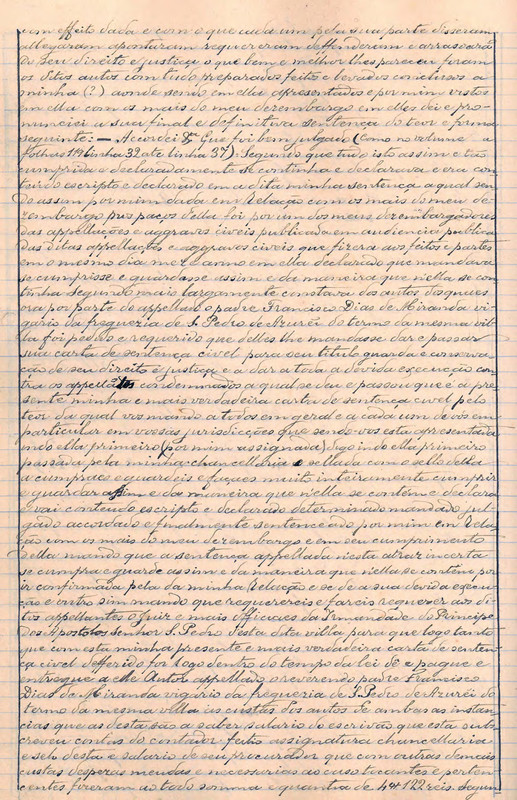 com effeito dada e com o que cada um pela sua parte disseram
allegaram apontaram requereram deffenderam e arrasoaram
do seu direito e justiça o que bem e melhor lhes pareceu foram
os ditos autos com tudo preparados feitos e levados conclusos a
minha (?) aonde sendo em ella apresentados e por mim vistos
em ella com os mais do meu dezembargo em elles dei e pro-
nunciei a sua final e definitiva sentença do teor e forma
seguinte: — Accordei Que foi bem julgado (Como no volume a
folhas 119 linha 32 até linha 37): Segundo que tudo isto assim e tão
cumprida e declaradamente se continha e declarava e era con-
teudo escripto e declarado em a dita minha sentença a qual sen-
do assim por mim dada em Relação com os mais do meu de-
zembargo pres paços della foi por um dos meus dezembargadores
das appellações e aggravos civeis publicada em audiencia publica
das ditas appellações e aggravos civeis que fizera aos feitos e partes
em o mesmo dia mez e anno em ella declarado que mandava
se cumprisse e guardasse assim e da maneira que n'ella se con-
tinha segundo mais largamente constava dos autos dos quaes
ora por parte do appellado o padre Francisco Dias de Miranda vi-
gario da freguezia de S. Pedro de Azurei do termo da mesma vil-
la foi pedido e requerido que delles lhe mandasse dar e passar
sua carta de sentença civel para seu titulo guarda e conserva-
ção de seu direito e justiça e a dar a toda a devida execução con-
tra os appellantes condemnados a qual se deu e passou que é a pre-
sente minha e mais verdadeira carta de sentença civel pelo
teor da qual vos mando a todos em geral e a cada um de vós em
particular em vossas jurisdicções que sendo-vos esta apresentada
indo ella primeiro (por mim assignada) digo indo ella primeiro
passada pela minha chancellaria e sellada com o sello della
a cumpraes e guardeis e façaes muito inteiramente cumprir
e guardar assim e da maneira que n'ella se contém e declara
e vai conteudo escripto e declarado determinado mandado jul-
gado accordado e finalmente sentenceado por mim em Rela-
ção com os mais do meu dezembargo e em seu cumprimento
della mando que a sentença appellada n'esta atraz incerta
se cumpra e guarde assim e da maneira que n'ella se contem por
ir confirmada pela da minha Relação e se dê a sua devida execu-
ção e outro sim mando que requerereis e fareis requerer aos di-
tos appellantes o Juiz e mais officiaes da Irmandade do Principe
dos Apostolos Senhor S. Pedro desta dita villa para que logo tanto
que com esta minha presente e mais verdadeira carta de senten-
ça civel defferido for logo dentro do tempo da lei dê e pague e
entregue a elle Autor appellado o reverendo padre Francisco
Dias de Miranda vigario da freguezia de S. Pedro de Azurei do
termo da mesma villa as custas dos autos de ambas as instan-
cias que as desta são a saber, salario do escrivão que esta subs-
creveu contas do contador feitio assignatura chancellaria
e sello desta e salario de seu procurador que com outras demais
custas despezas meudas e necessarias ao caso tocantes e perten-
centes fizeram ao todo somma e quantia de 4$122 reis segun